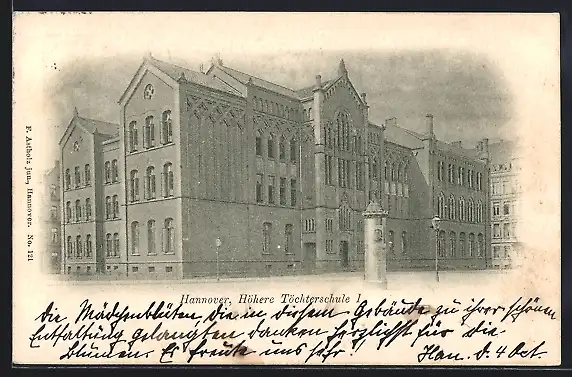 F. Astholz jun., Hannover. No. 121
Hannover, Höhere Töchterschule I.
Die Mädchenblüten, die in diesem Gebäude zu ihrer schönen
Entfaltung gelangten danken herzlichst für die
Blumen. Es freute uns sehr! Han. d. 4 Oct.